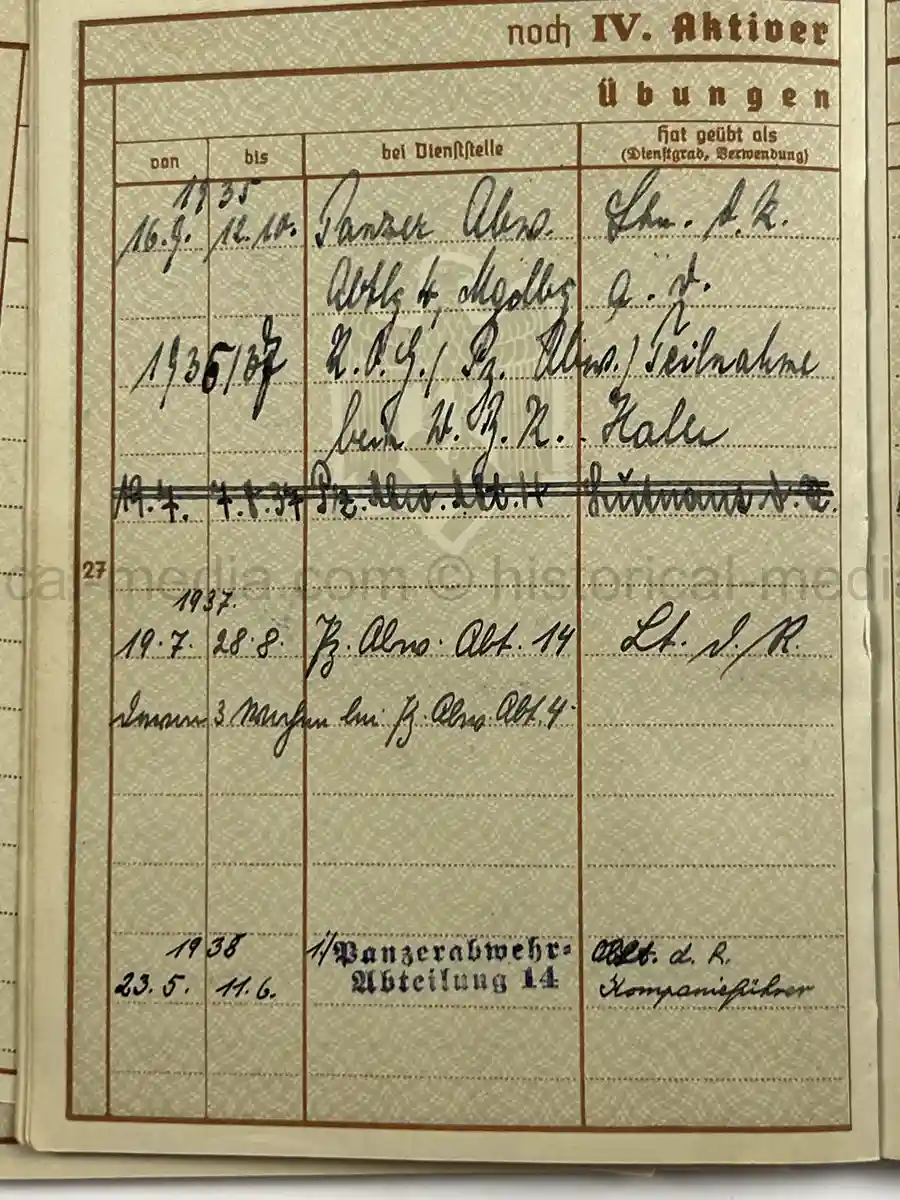 noch IV. Aktiver
Übungen
von bis bei Dienststelle Hat geübt als
(Dienstgrad, Verwendung)
1935
16.9. 12.10. Panzer Abw. Ltn. d. R.
Abtlg 4, Magdbg a. D.
1936/37 K.O.G./ Pz. Abw./ Teilnahme
beim W. B. K. Halle
19.7. 7.8.37 Pz. Abw. Abt. 14 Leutnant d. R.
27
car-media.com © historical-media
1937.
19.7. 28.8. Pz. Abw. Abt. 14 Lt. d. R.
davon 3 Wochen bei Pz. Abw. Abt. 4.
1938 1./Panzerabwehr-
23.5. 11.6. Abteilung 14
Oblt. d. R.
Kompanieführer